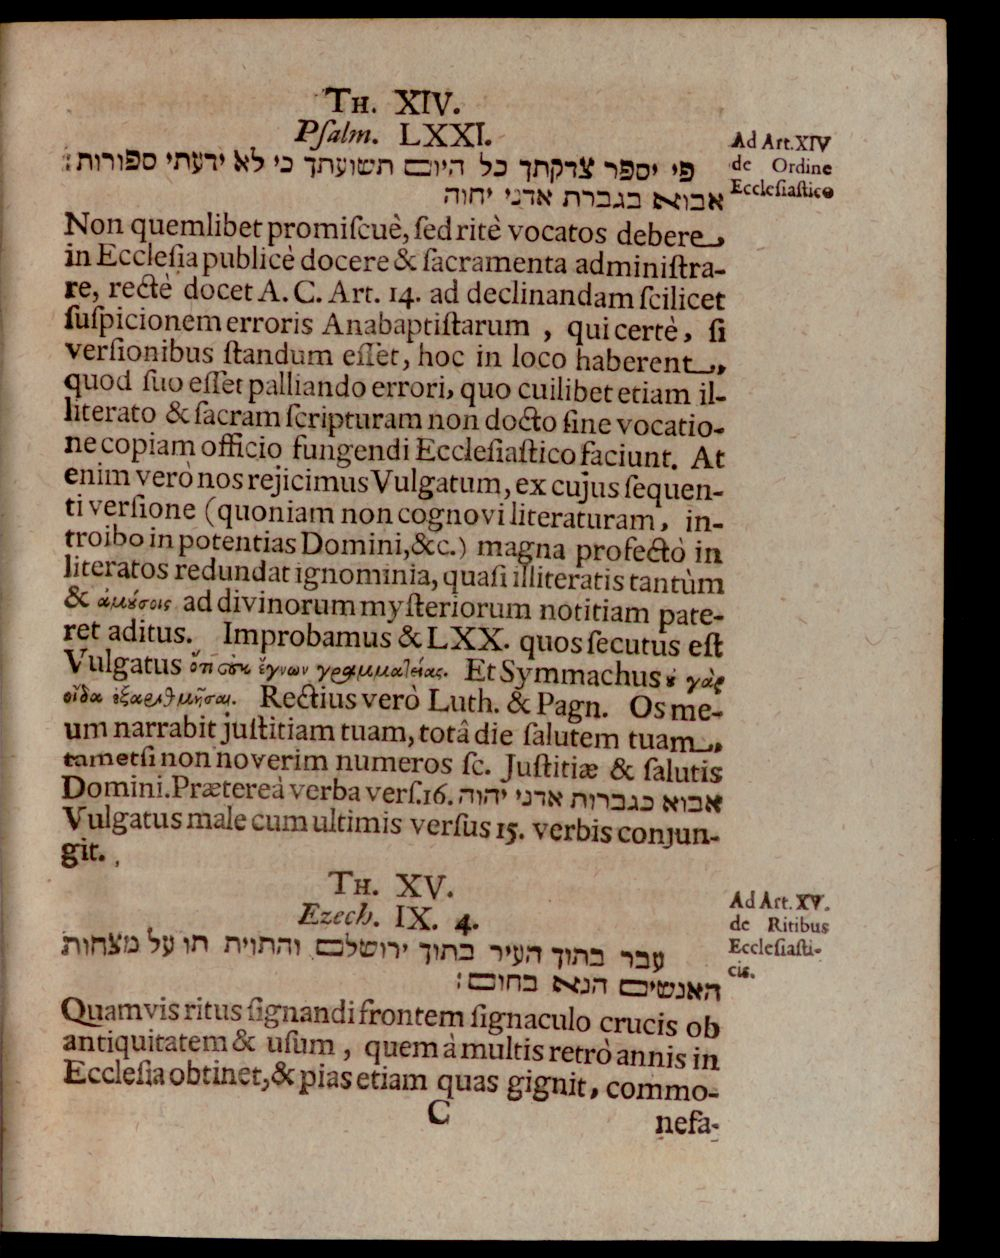 TH. XIV.
Pſalm. LXXI.
Ad Art. XIV
de Ordine
Eccleſiaſtico
פי יספר צדקתך כל היום תשועתך כי לא ידעתי ספורות:
אבוא בגברת אדני יחוה
Non quemlibet promiſcuè, ſed ritè vocatos debere,
in Eccleſia publicè docere & ſacramenta adminiſtra-
re, rectè docet A. C. Art. 14. ad declinandam ſcilicet
ſuſpicionem erroris Anabaptiſtarum, qui certè, ſi
verſionibus ſtandum eſſet, hoc in loco haberent,
quod ſuo eſſet palliando errori, quo cuilibet etiam il-
literato & ſacram ſcripturam non docto ſine vocatio-
ne copiam officio fungendi Eccleſiaſtico faciunt. At
enim verò nos rejicimus Vulgatum, ex cujus ſequen-
ti verſione (quoniam non cognovi literaturam, in-
troibo in potentias Domini, &c.) magna profectò in
literatos redundat ignominia, quaſi illiteratis tantùm
& ἀμύσοις ad divinorum myſteriorum notitiam pate-
ret aditus. Improbamus & LXX. quos ſecutus eſt
Vulgatus ὅτι οὐκ ἔγνων γραμματείας. Et Symmachus ὐ γὰρ
οἶδα ἐξαριθμῆσαι. Rectius verò Luth. & Pagn. Os me-
um narrabit juſtitiam tuam, totâ die ſalutem tuam,
tametſi non noverim numeros ſc. Juſtitiæ & ſalutis
Domini. Prætereà verba verſ. 16. אבוא בגברות אדני יהוה
Vulgatus male cum ultimis verſus 15. verbis conjun-
git.
TH. XV.
Ezech. IX. 4.
Ad Art. XV.
de Ritibus
Eccleſiaſti-
cis.
עבר בתוך העיר בתוך ירושלם והתוית תו על מצחות
האנשים הנא בחום:
Quamvis ritus ſignandi frontem ſignaculo crucis ob
antiquitatem & uſum, quem à multis retrò annis in
Eccleſia obtinet, & pias etiam quas gignit, commo-
C
nefa-